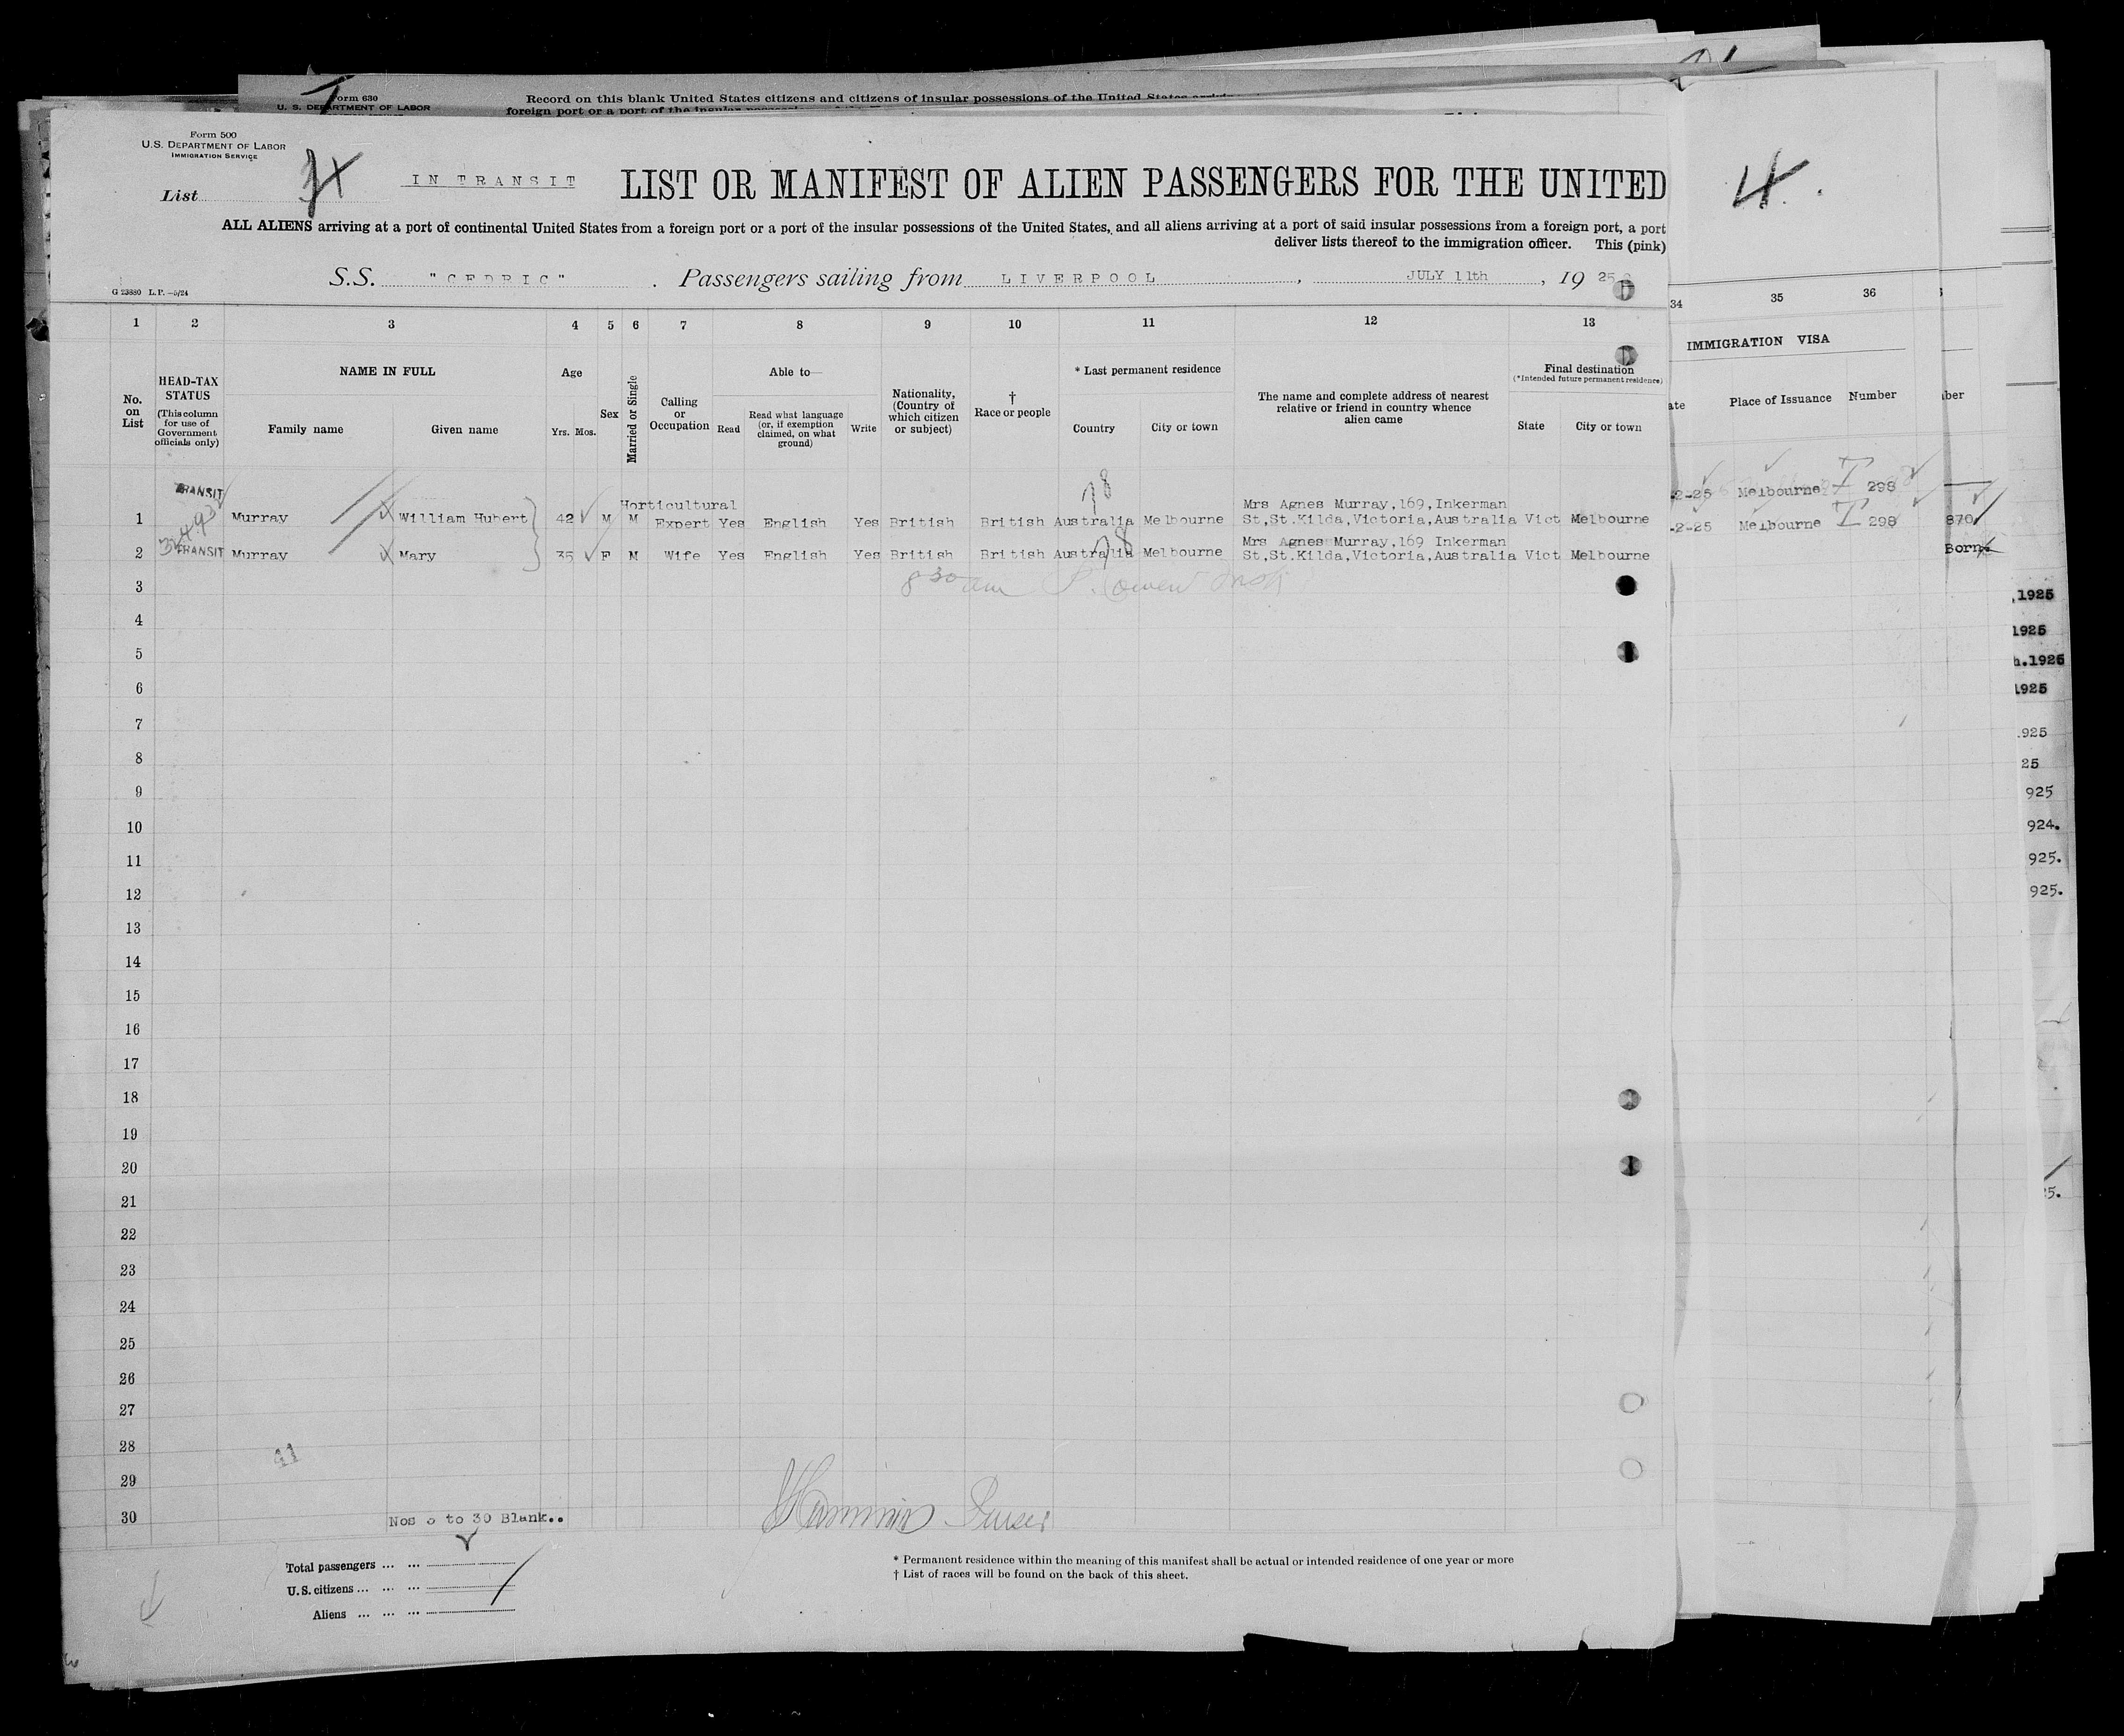 Form 630
U. S. DEPARTMENT OF LABOR
Record on this blank United States citizens and citizens of insular possessions of the United States
foreign port or a port of the insular
Form 500
U.S. DEPARTMENT OF LABOR
IMMIGRATION SERVICE
List
IN TRANSIT
LIST OR MANIFEST OF ALIEN PASSENGERS FOR THE UNITED
4.
ALL ALIENS arriving at a port of continental United States from a foreign port or a port of the insular possessions of the United States, and all aliens arriving at a port of said insular possessions from a foreign port, a port
deliver lists thereof to the immigration officer. This (pink)
S.S. "CEDRIC". Passengers sailing from LIVERPOOL, JULY 11th, 1925
G 23880 L.P.—5/24
1 2 3 4 5 6 7 8 9 10 11 12 13 34 35 36
IMMIGRATION VISA
ate Place of Issuance Number ber
No. on List
HEAD-TAX STATUS
(This column for use of Government officials only)
NAME IN FULL
Family name Given name
Age
Yrs. Mos.
Sex
Married or Single
Calling or Occupation
Able to—
Read
Read what language (or, if exemption claimed, on what ground)
Write
Nationality, (Country of which citizen or subject)
† Race or people
* Last permanent residence
Country City or town
The name and complete address of nearest relative or friend in country whence alien came
Final destination
(*Intended future permanent residence)
State City or town
TRANSIT
1 Murray William Hubert 42 M M Horticultural Expert Yes English Yes British British Australia Melbourne Mrs Agnes Murray,169,Inkerman St,St.Kilda,Victoria,Australia Vict Melbourne
-2-25 Melbourne 298
TRANSIT
2 Murray Mary 35 F M Wife Yes English Yes British British Australia Melbourne Mrs Agnes Murray,169 Inkerman St,St.Kilda,Victoria,Australia Vict Melbourne
-2-25 Melbourne 298
870
Born
78
78
8 30 am
3
4
5
6
7
8
9
10
11
12
13
14
15
16
17
18
19
20
21
22
23
24
25
26
27
28
29
30
,1925
1925
h.1925
1925
.925
25
925
924.
925.
925.
5.
41
Nos 3 to 30 Blank..
Purser
Total passengers ... ...
U.S. citizens ... ... ...
Aliens ... ... ...
* Permanent residence within the meaning of this manifest shall be actual or intended residence of one year or more
† List of races will be found on the back of this sheet.